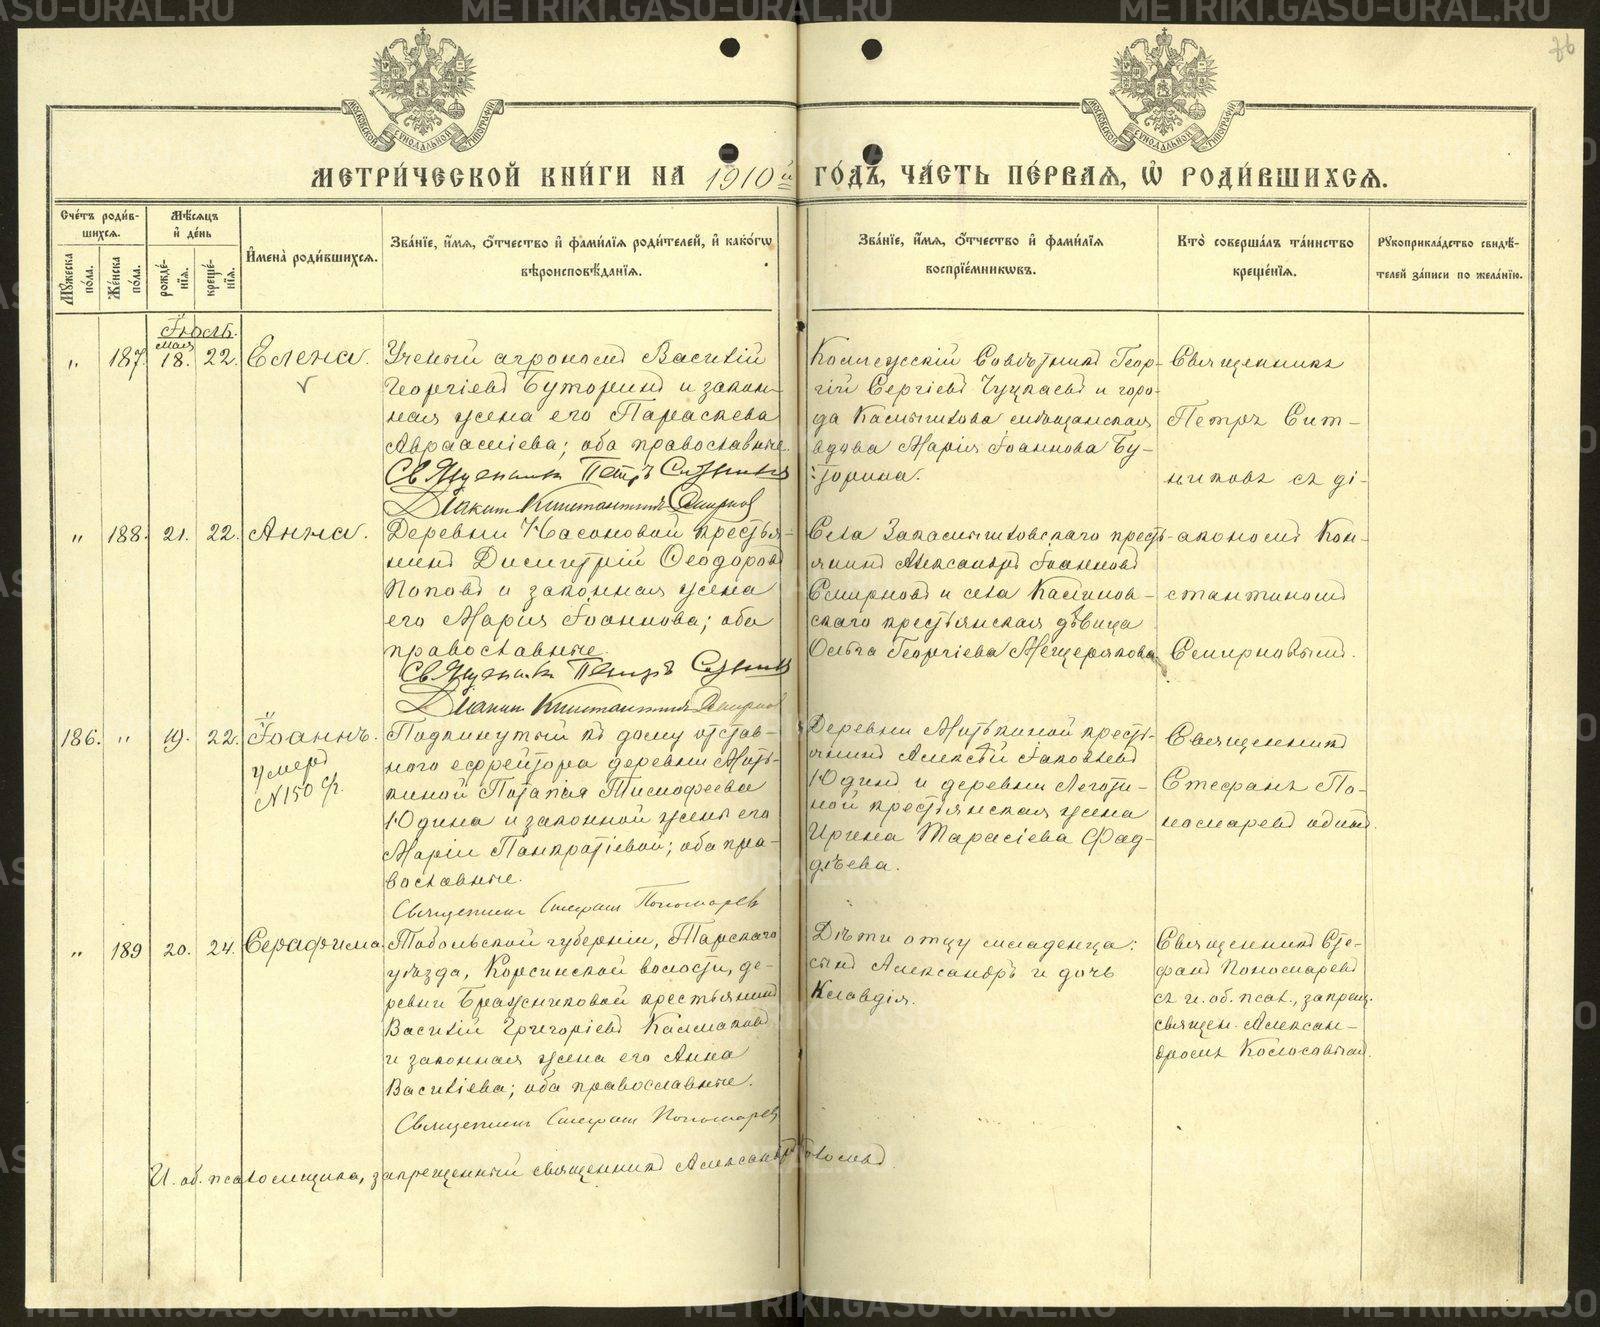 МЕТРИ́ЧЕСКОЙ КНИ́ГИ НА 1910й ГО́ДЪ, ЧА́СТЬ ПЕ́РВАЯ, Ѡ҆ РОДИ́ВШИХСЯ.
МОСКОВСКОЙ СѴНОДАЛЬНОЙ ТИПОГРАФІИ
МОСКОВСКОЙ СѴНОДАЛЬНОЙ ТИПОГРАФІИ
Сче́тъ роди́в-
шихся.
Мꙋ́жеска по́ла.
Же́нска по́ла.
Мѣ́сяцъ
и҆ де́нь
рожде́-
нїя.
креще́-
нїя.
И҆мена̀ роди́вшихся.
Зва́нїе, и҆́мя, ѻ҆́тчество и҆ фами́лїя роди́телей, и҆ како́гѡ
вѣроисповѣ́данїя.
Зва́нїе, и҆́мя, ѻ҆́тчество и҆ фами́лїя
воспрїе́мникѡвъ.
Кто̀ соверша́лъ та́инство
креще́нїя.
Рꙋкоприкла́дство свидѣ́-
телей за́писи по жела́нїю.
Іюль.
мая
" 187. 18. 22. Елена.
Ученый агрономъ Василій
Георгіевъ Буторинъ и закон-
ная жена его Параскева
Аврааміева; оба православные.
Священникъ Петръ Ситников
Діаконъ Константинъ Смирнов
Коллежскій Совѣтникъ Геор-
гій Сергіевъ Чуцкаевъ и горо-
да Камышлова мѣщанская
вдова Марія Іоаннова Бу-
торина.
Священникъ
Петръ Сит-
никовъ съ ді-
" 188. 21. 22. Анна.
Деревни Насоновой крестья-
нинъ Димитрій Ѳеодоровъ
Поповъ и законная жена
его Марія Іоаннова; оба
православные.
Священникъ Петръ Ситников
Діаконъ Константинъ Смирнов
Села Закамышловскаго кресть-
янинъ Александръ Іоанновъ
Смирновъ и села Калинов-
скаго крестьянская дѣвица
Ольга Георгіева Мещерякова
акономъ Кон-
стантиномъ
Смирновымъ.
186. " 19. 22. Іоаннъ.
умеръ
N150 ср.
Подкинутый къ дому отстав-
ного ефрейтора деревни Мать-
киной Потапія Тимофеева
Юдина и законной жены его
Маріи Панкратіевой; оба пра-
вославные.
Священникъ Стефанъ Пономаревъ
Деревни Матькиной кресть-
янинъ Алексѣй Іаковлевъ
Юдинъ и деревни Логоти-
ной крестьянская жена
Ирина Тарасіева Фад-
дѣева.
Священникъ
Стефанъ По-
номаревъ одинъ.
" 189 20. 24. Серафима.
Тобольской губерніи, Тарскаго
уѣзда, Корсинской волости, де-
ревни Бражниковой крестьянинъ
Василій Григоріевъ Калмаковъ
и законная жена его Анна
Василіева; оба православные.
Священникъ Стефанъ Пономаревъ
Дѣти отцу младенца:
сынъ Александръ и дочь
Клавдія.
Священникъ Сте-
фанъ Пономаревъ
съ и. об. псал., запрещ.
священ. Алексан-
дромъ Колосовымъ.
И. об. псаломщика, запрещенный священникъ Александръ Колосовъ
METRIKI.GASO-URAL.RU